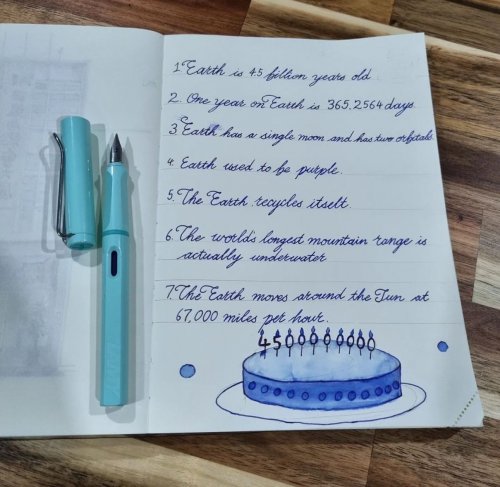 1 Earth is 4.5 billion years old
2. One year on Earth is 365.2564 days.
3 Earth has a single moon and has two orbitals
4. Earth used to be purple.
5. The Earth recycles itself.
6. The world's longest mountain range is
actually underwater
7. The Earth moves around the Sun at
67,000 miles per hour.
4500000000